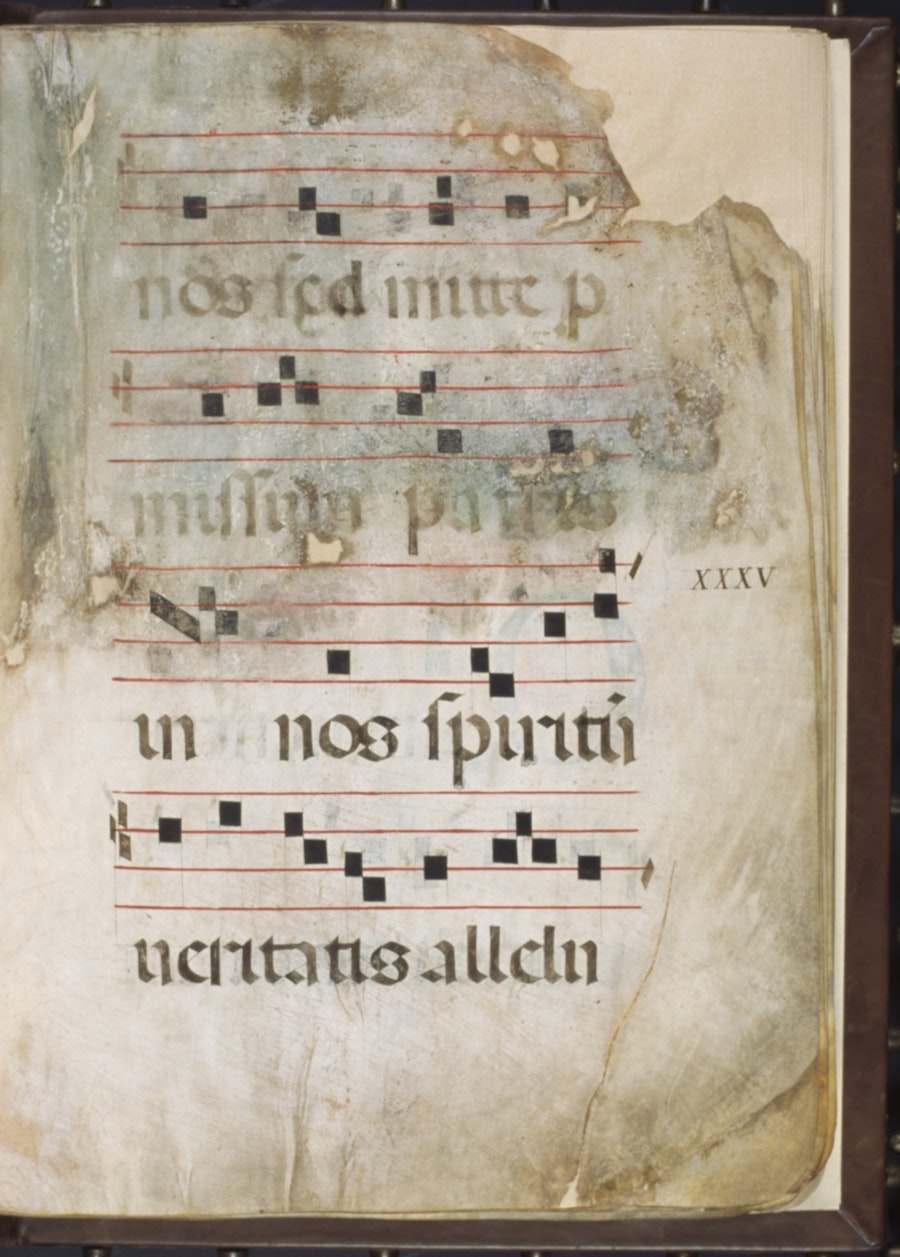 nos sed mitte p
missum patris
XXXV
in nos spiritū
ueritatis allelu